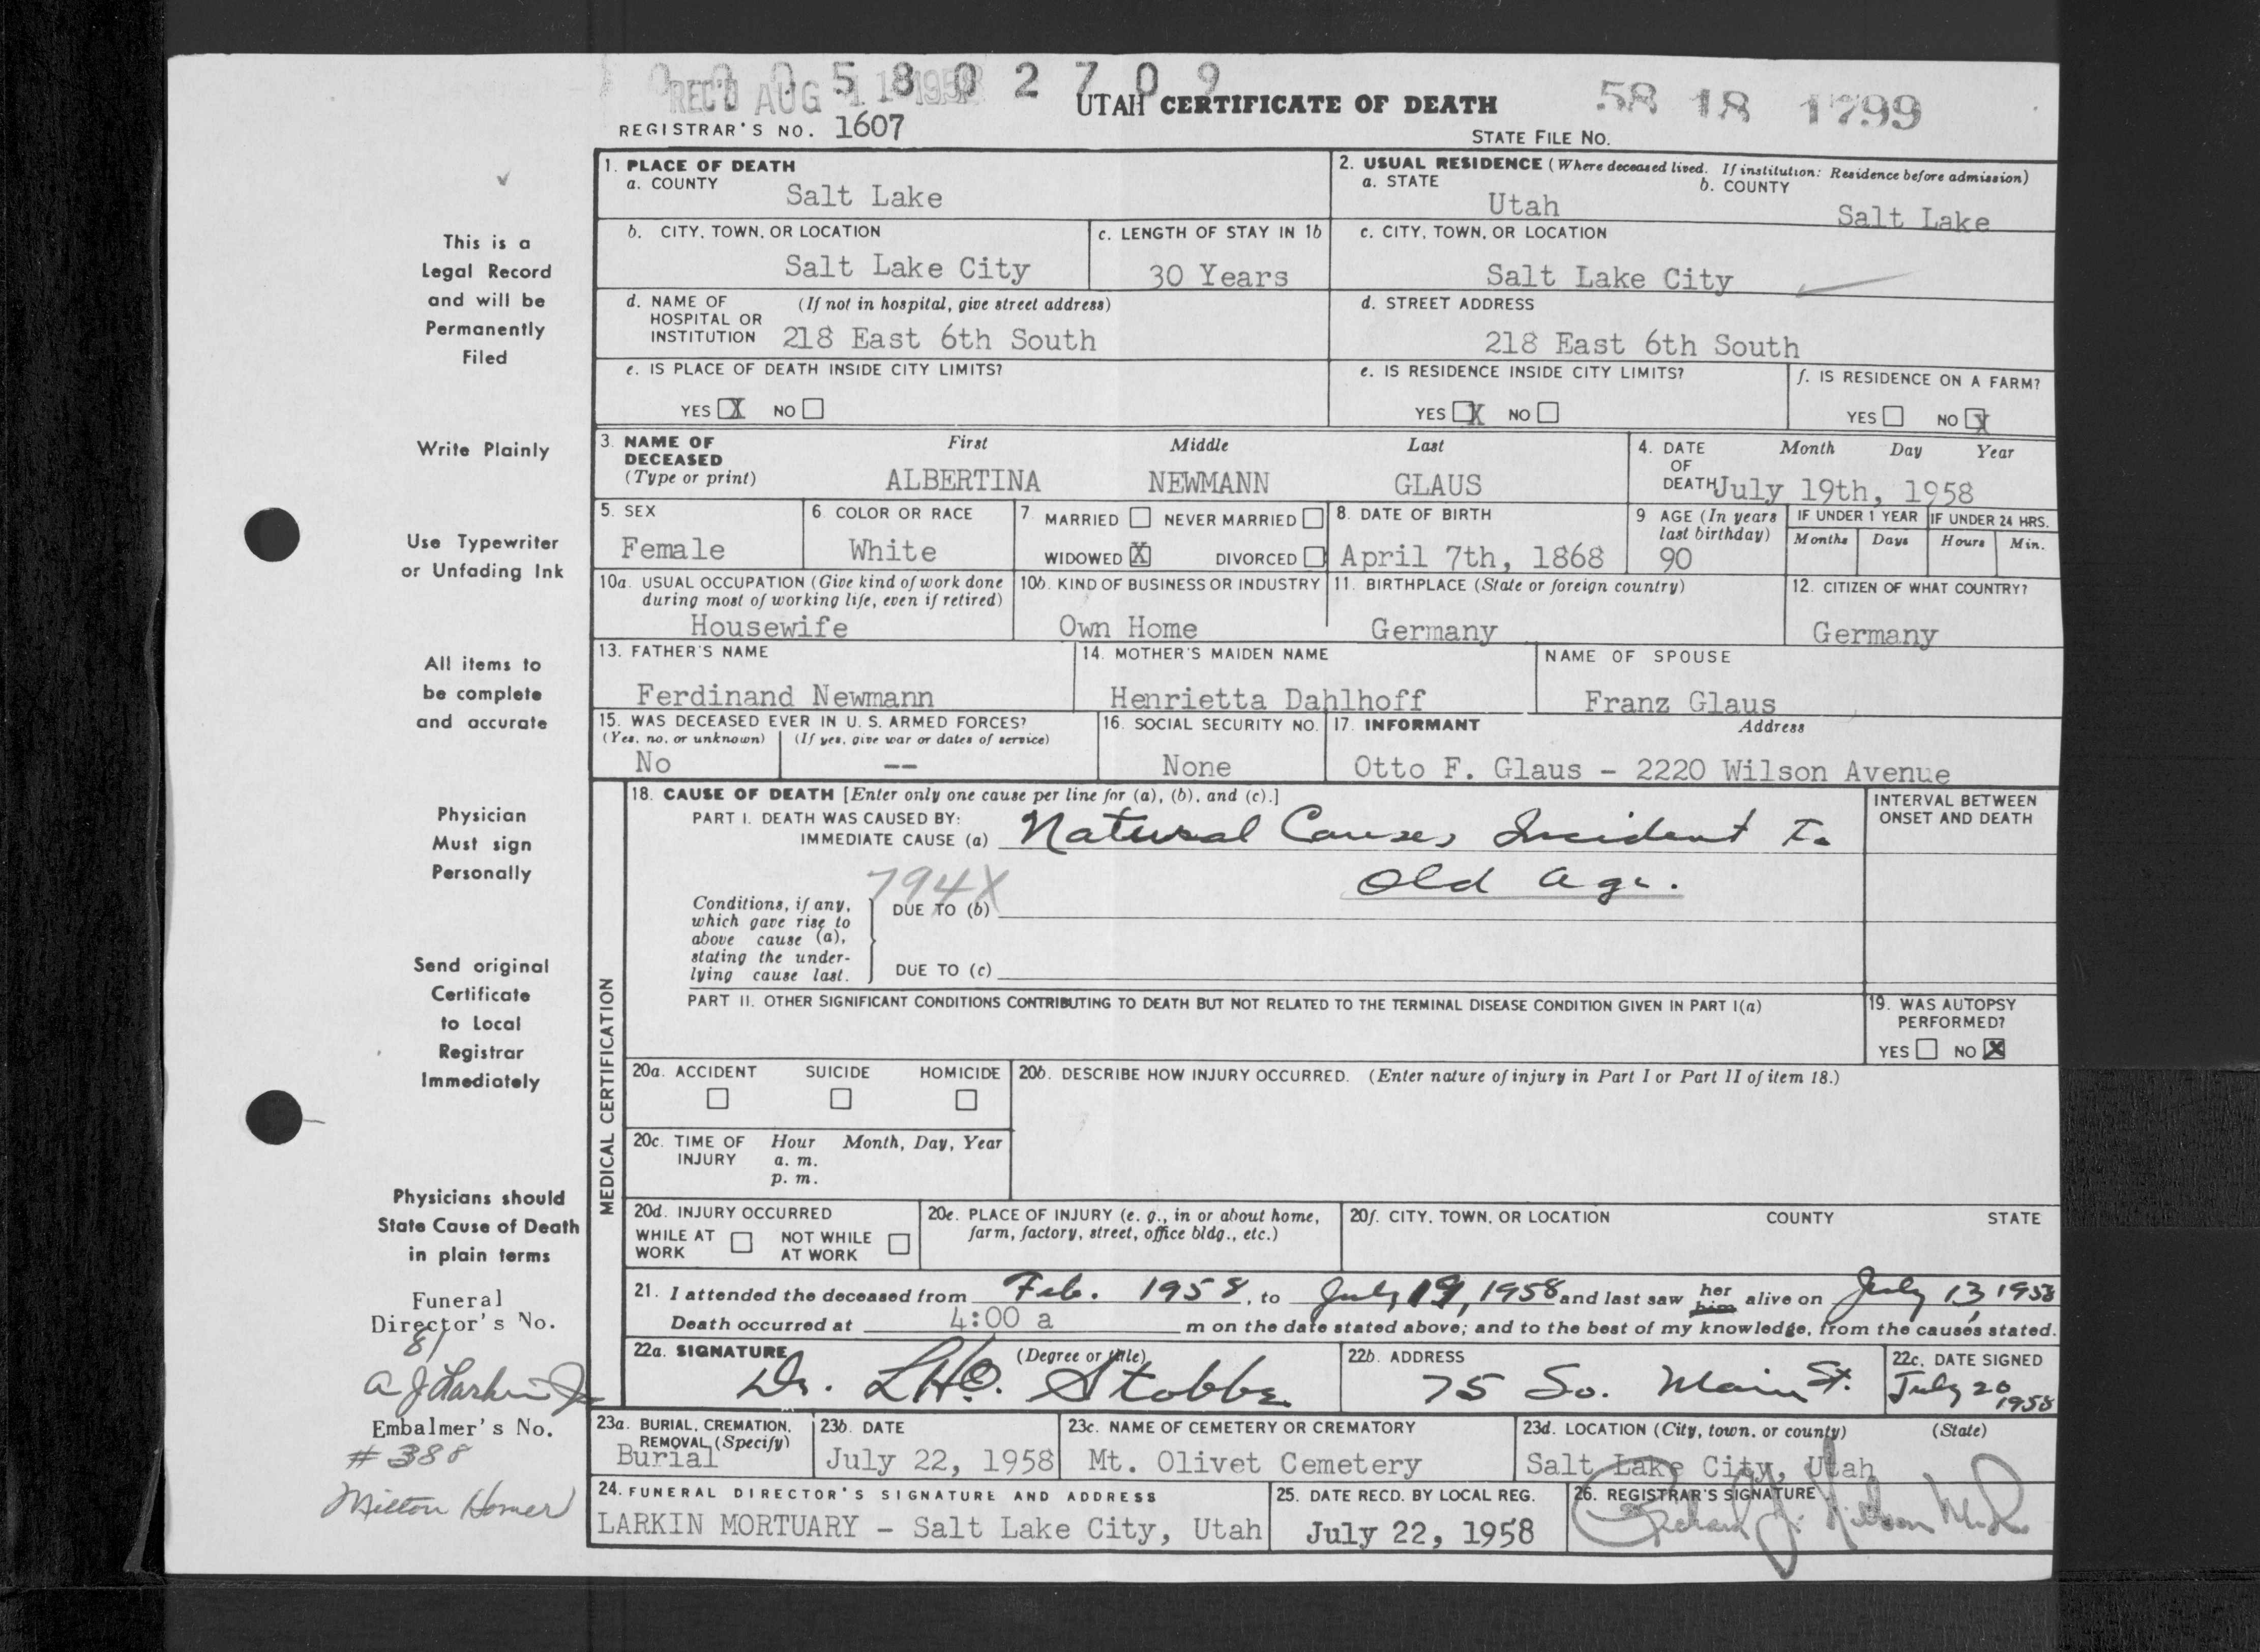 0 0 0 5 8 0 2 7 0 9
REC'D AUG 11 1958
UTAH CERTIFICATE OF DEATH
58 18 1799
REGISTRAR'S NO. 1607
STATE FILE NO.
1. PLACE OF DEATH
a. COUNTY
Salt Lake
2. USUAL RESIDENCE (Where deceased lived. If institution: Residence before admission)
a. STATE
Utah
b. COUNTY
Salt Lake
b. CITY, TOWN, OR LOCATION
Salt Lake City
c. LENGTH OF STAY IN 1b
30 Years
c. CITY, TOWN, OR LOCATION
Salt Lake City
d. NAME OF (If not in hospital, give street address)
HOSPITAL OR
INSTITUTION 218 East 6th South
d. STREET ADDRESS
218 East 6th South
e. IS PLACE OF DEATH INSIDE CITY LIMITS?
YES X NO
e. IS RESIDENCE INSIDE CITY LIMITS?
YES X NO
f. IS RESIDENCE ON A FARM?
YES NO X
3. NAME OF DECEASED
(Type or print)
First Middle Last
ALBERTINA NEWMANN GLAUS
4. DATE OF DEATH
Month Day Year
July 19th, 1958
5. SEX
Female
6. COLOR OR RACE
White
7. MARRIED NEVER MARRIED
WIDOWED X DIVORCED
8. DATE OF BIRTH
April 7th, 1868
9 AGE (In years last birthday)
90
IF UNDER 1 YEAR
Months Days
IF UNDER 24 HRS.
Hours Min.
10a. USUAL OCCUPATION (Give kind of work done
during most of working life, even if retired)
Housewife
10b. KIND OF BUSINESS OR INDUSTRY
Own Home
11. BIRTHPLACE (State or foreign country)
Germany
12. CITIZEN OF WHAT COUNTRY?
Germany
13. FATHER'S NAME
Ferdinand Newmann
14. MOTHER'S MAIDEN NAME
Henrietta Dahlhoff
NAME OF SPOUSE
Franz Glaus
15. WAS DECEASED EVER IN U. S. ARMED FORCES?
(Yes, no, or unknown) (If yes, give war or dates of service)
No --
16. SOCIAL SECURITY NO.
None
17. INFORMANT Address
Otto F. Glaus - 2220 Wilson Avenue
MEDICAL CERTIFICATION
18. CAUSE OF DEATH [Enter only one cause per line for (a), (b), and (c).]
PART I. DEATH WAS CAUSED BY:
IMMEDIATE CAUSE (a) Natural Causes Incident To
Old Age.
794X
INTERVAL BETWEEN
ONSET AND DEATH
Conditions, if any,
which gave rise to
above cause (a),
stating the under-
lying cause last.
DUE TO (b)
DUE TO (c)
PART II. OTHER SIGNIFICANT CONDITIONS CONTRIBUTING TO DEATH BUT NOT RELATED TO THE TERMINAL DISEASE CONDITION GIVEN IN PART I(a)
19. WAS AUTOPSY
PERFORMED?
YES NO X
20a. ACCIDENT SUICIDE HOMICIDE
20b. DESCRIBE HOW INJURY OCCURRED. (Enter nature of injury in Part I or Part II of item 18.)
20c. TIME OF INJURY Hour Month, Day, Year
a. m.
p. m.
20d. INJURY OCCURRED
WHILE AT WORK NOT WHILE AT WORK
20e. PLACE OF INJURY (e. g., in or about home,
farm, factory, street, office bldg., etc.)
20f. CITY, TOWN, OR LOCATION COUNTY STATE
21. I attended the deceased from Feb. 1958, to July 19, 1958 and last saw her him alive on July 13, 1958
Death occurred at 4:00 a m on the date stated above; and to the best of my knowledge, from the causes stated.
22a. SIGNATURE (Degree or title)
Dr. LHO. Stobbe
22b. ADDRESS
75 So. Main St.
22c. DATE SIGNED
July 20 1958
23a. BURIAL, CREMATION,
REMOVAL (Specify)
Burial
23b. DATE
July 22, 1958
23c. NAME OF CEMETERY OR CREMATORY
Mt. Olivet Cemetery
23d. LOCATION (City, town, or county) (State)
Salt Lake City, Utah
24. FUNERAL DIRECTOR'S SIGNATURE AND ADDRESS
LARKIN MORTUARY - Salt Lake City, Utah
25. DATE RECD. BY LOCAL REG.
July 22, 1958
26. REGISTRAR'S SIGNATURE
This is a
Legal Record
and will be
Permanently
Filed
Write Plainly
Use Typewriter
or Unfading Ink
All items to
be complete
and accurate
Physician
Must sign
Personally
Send original
Certificate
to Local
Registrar
Immediately
Physicians should
State Cause of Death
in plain terms
Funeral
Director's No.
81
A J Larkin Jr
Embalmer's No.
# 388
Milton Homer